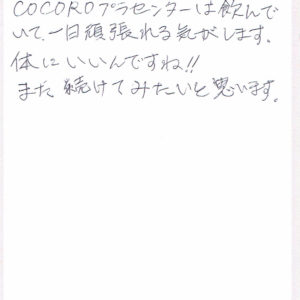 COCOROプラセンターは飲んで
いて、一日頑張れる気がします。
体にいいんですね!!
また続けてみたいと思います。